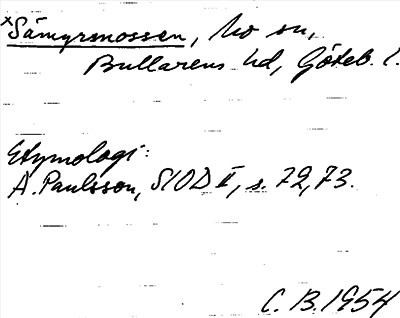 ×Sämyrsmossen, Mo sn,
Bullarens hd, Göteb. l.
Etymologi:
A. Paulsson, SIOD II, s. 72, 73.
C. B. 1954